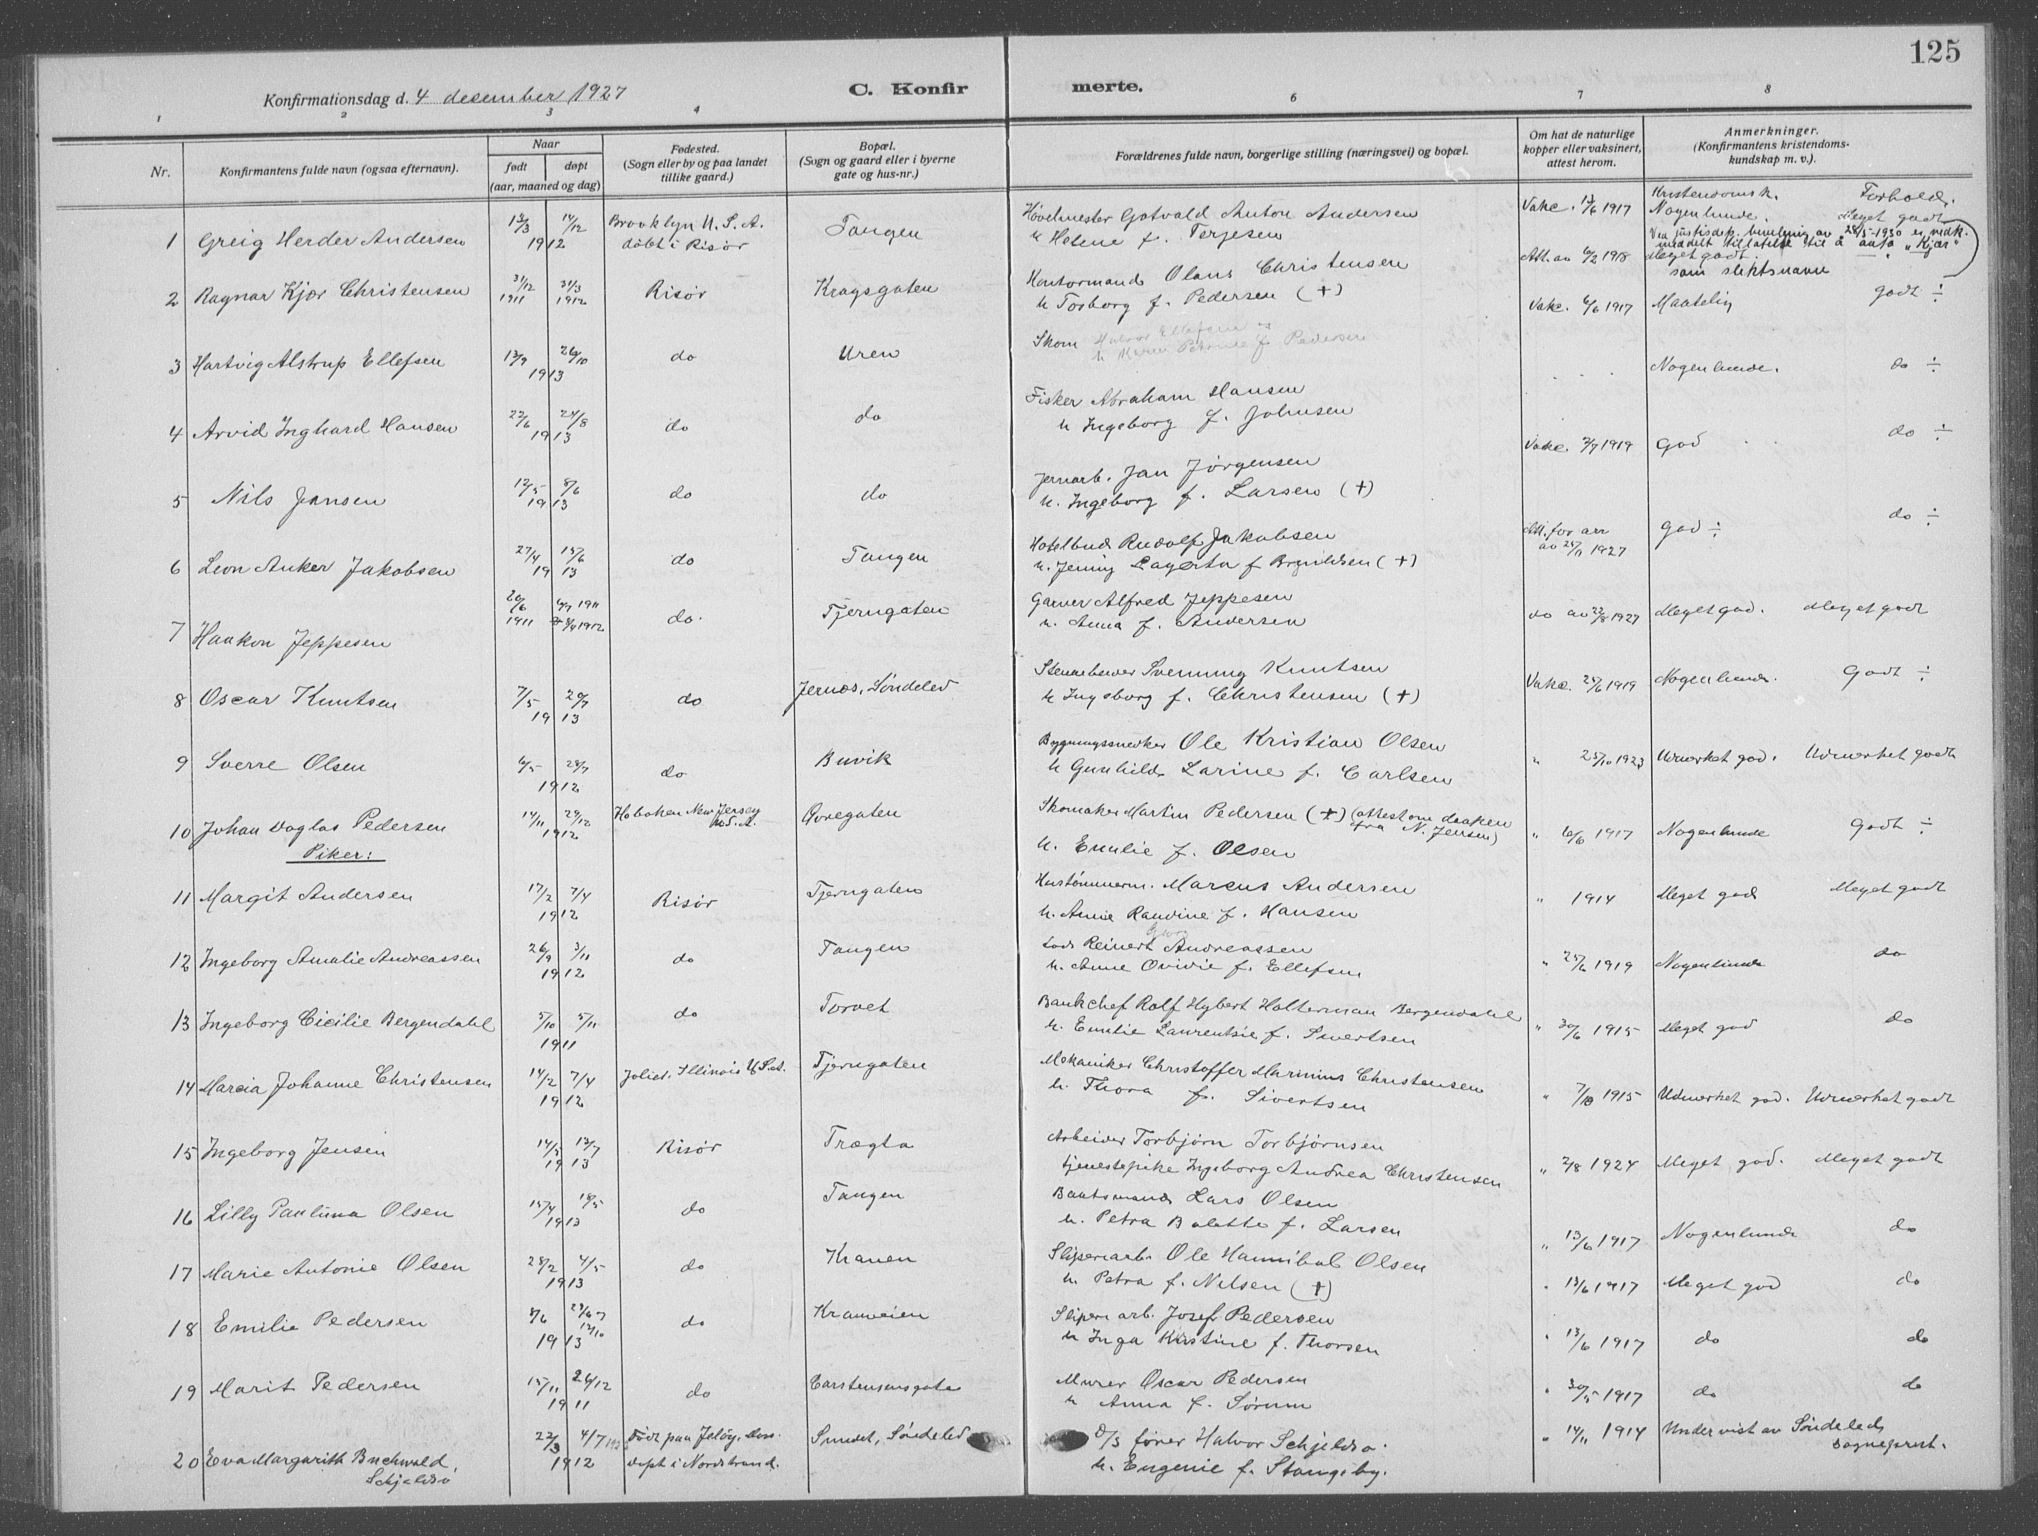 125
Konfirmationsdag d. 4 desember 1927
C. Konfir merte.
1 2 3 4 6 7 8
Nr.
Konfirmantens fulde navn (ogsaa efternavn).
Naar
født døpt
(aar, maaned og dag)
Fødested.
(Sogn eller by og paa landet
tillike gaard.)
Bopæl.
(Sogn og gaard eller i byerne
gate og hus-nr.)
Forældrenes fulde navn, borgerlige stilling (næringsvei) og bopæl.
Om hat de naturlige
kopper eller vaksinert,
attest herom.
Anmerkninger.
(Konfirmantens kristendoms-
kundskap m. v.).
Kristendomsk. Forhold.
1 Greig Herder Andersen 13/3 14/12 1912 Brooklyn U.S.A. døbt i Risør Tangen
Høvelmester Gotvald Anton Andersen
h Helene f. Terjesen
Vakc. 13/6 1917 Nogenlunde. Meget godt
Ved justisdep. bevilling av 28/5-1930 er vedk.
meddelt tillatelse til å anta "Kjær"
som slektsnavn
2 Ragnar Kjær Christensen 31/12 1911 31/3 1912 Risør Kragsgaten
Kontormand Olaus Christensen
h Tosborg f. Pedersen (+)
Att. av 6/2 1918 Meget godt.
3 Hartvig Alstrup Ellefsen 13/9 26/10 1913 do Uren
Skom Halvor Ellefsen og
h Karen Petrine f Pedersen
Vakc. 6/6 1917 Maatelig godt ÷
4 Arvid Inghard Hansen 22/6 24/8 1913 do do
Fisker Abraham Hansen
h Ingeborg f. Johnsen
Nogenlunde. do ÷
5 Nils Jansen 12/5 8/6 1913 do do
Jernarb. Jan Jørgensen
h. Ingeborg f. Larsen (+)
Vakc. 2/7 1919 God do ÷
6 Leon Anker Jakobsen 27/4 15/6 1913 do Tangen
Hotelbud Rudolf Jakobsen
h. Jenny Lagerta f Brynildsen (+)
Att. for arr
av 25/11 1927 God ÷ do ÷
7 Haakon Jeppesen 20/6 1911 6/7 1911 8/4 1912 do. Tjerngaten
Garver Alfred Jeppesen
h. Anna f. Andersen
do av 22/8 1927 Meget god. Meget godt
8 Oscar Knutsen 7/5 20/7 1913 do Jernæs, Søndeled
Stenarbeider Svenning Knutsen
h Ingeborg f. Christensen (+)
Vakc. 24/6 1919 Nogenlunde. Godt ÷
9 Sverre Olsen 6/5 28/7 1912 do Buvik
Bygningssnedker Ole Kristian Olsen
h Gunhilde Larine f. Carlsen
" 25/10 1923 Udmerket god. Udmerket godt
10 Johan Doglas Pedersen 14/11 29/12 1912 Hoboken New Jersey U.S.A. Øvregaten
Skomaker Martin Pedersen (+) (attest om daapen
fra N. Jensen)
h. Emilie f. Olsen
" 6/6 1917 Nogenlunde Godt ÷
Piker:
11 Margit Andersen 17/2 7/4 1912 Risør Tjerngaten
Hustømmerm. Marcus Andersen
h. Anne Randine f. Hansen
" 1914 Meget god Meget godt
12 Ingeborg Amalie Andreassen 26/9 3/11 1912 do Tangen
Lods Reinert Andreassen
h. Anne Ovidie f. Ellefsen
" 25/6 1919 Nogenlunde do
13 Ingeborg Cicilie Bergendahl 5/10 5/11 1911 do Torvet
Bankchef Rolf Hybert Holterman Bergendahl
h. Emilie Laurentsie f. Sivertsen
" 30/6 1915 Meget god do
14 Marcia Johanne Christensen 14/2 7/4 1912 Joliet. Illinois U.S.A. Tjerngaten
Mekaniker Christoffer Marinius Christensen
h. Thora f. Sivertsen
" 7/10 1915 Udmerket god. Udmerket godt
15 Ingeborg Jensen 14/5 13/7 1913 Risør Trægta
Arbeider Torbjørn Torbjørnsen
tjenestepike Ingeborg Andrea Christensen
" 2/8 1924 Meget god. Meget godt
16 Lilly Paulina Olsen 15/4 18/5 1913 do Tangen
Baatsmand Lars Olsen
h. Petra Bolette f. Larsen
" 13/6 1917 Nogenlunde do
17 Marie Antonie Olsen 28/2 4/5 1913 do Kranen
Sliperiarb Ole Hannibal Olsen
h. Petra f. Nilsen (+)
" 13/6 1917 Meget god do
18 Emilie Pedersen 8/6 12/10 1913 do Kranveien
Sliperi arb. Josef Pedersen
h Inga Kristine f. Thorsen
" 13/6 1917 do do
19 Marit Pedersen 15/11 26/12 1911 do Carstensensgate
Murer Oscar Pedersen
h Anna f. Sørum
" 30/5 1917 do do
20 Eva Margarith Buchwald Schjeldsø 22/3 4/7 1912 Født paa Jeløy, Moss. døpt i Nordstrand. Sundet, Søndeled
D/S fører Halvor Schjeldsø
h. Eugenie f. Stangeby.
" 14/11 1914 Undervist av Søndeled
sogneprest.